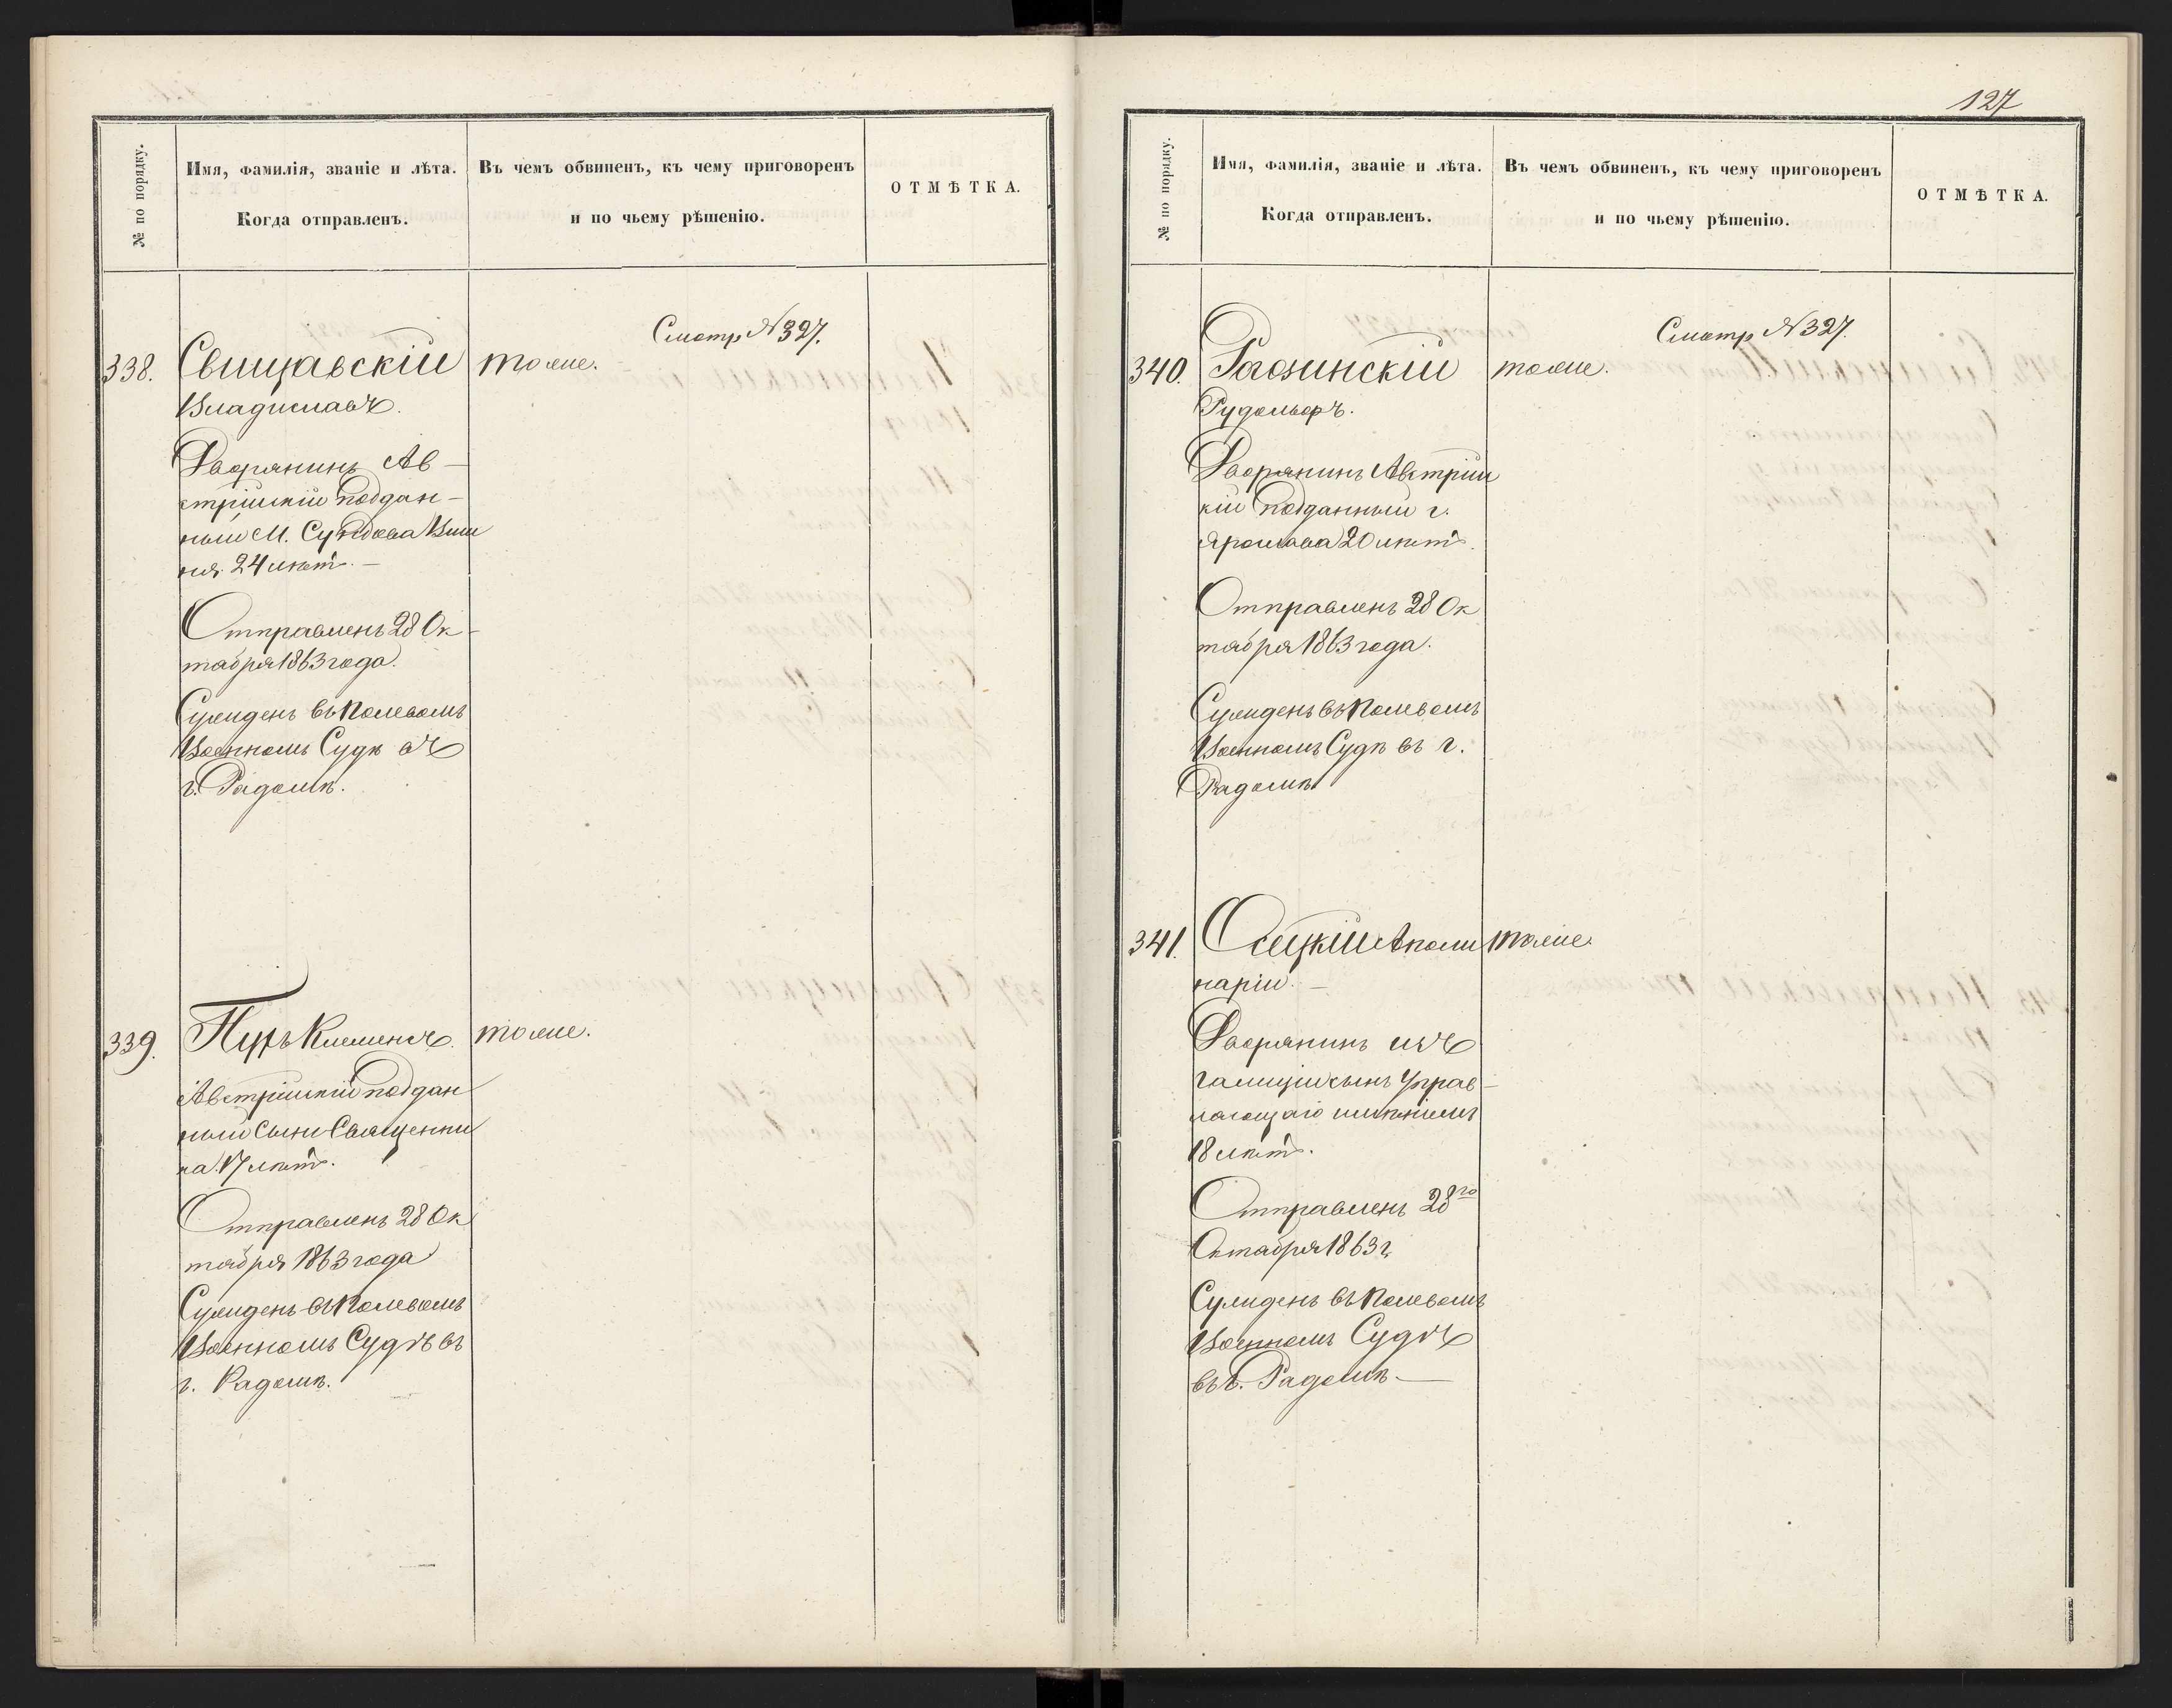 № по порядку.
Имя, фамилія, званіе и лѣта.
Когда отправленъ.
Въ чемъ обвиненъ, къ чему приговоренъ
и по чьему рѣшенію.
ОТМѢТКА.
Смотр. № 327.
338. Свищавскій тоже.
Владиславъ.
Дворянинъ Ав-
стрійскій поддан-
ный М. Судова Виш
ня 24 лѣтъ. –
Отправленъ 28 Ок-
тября 1863 года.
Сужденъ въ Полевомъ
Военномъ Судѣ въ
г. Радомѣ.
339. Пуръ Клеменсъ. тоже.
Австрійскій поддан
ный Сынъ Священни
ка. 17 лѣтъ.
Отправленъ 28 Ок
тября 1863 года
Сужденъ въ Полевомъ
Военномъ Судѣ въ
г. Радомѣ.
127
№ по порядку.
Имя, фамилія, званіе и лѣта.
Когда отправленъ.
Въ чемъ обвиненъ, къ чему приговоренъ
и по чьему рѣшенію.
ОТМѢТКА.
Смотр. № 327.
340. Рогозинскій тоже.
Рудольфъ.
Дворянинъ Австрійс
кій подданный г.
Ярослава 20 лѣтъ.
Отправленъ 28 Ок
тября 1863 года.
Сужденъ въ Полевомъ
Военномъ Судѣ въ г.
Радомѣ
341. Осецкій Аполи тоже.
нарій. –
Дворянинъ изъ
Галиціи сынъ Управ-
ляющаго имѣніемъ
18 лѣтъ.
Отправленъ 28го
Октября 1863 г.
Сужденъ въ Полевомъ
Военномъ Судѣ
въ г. Радомѣ. –